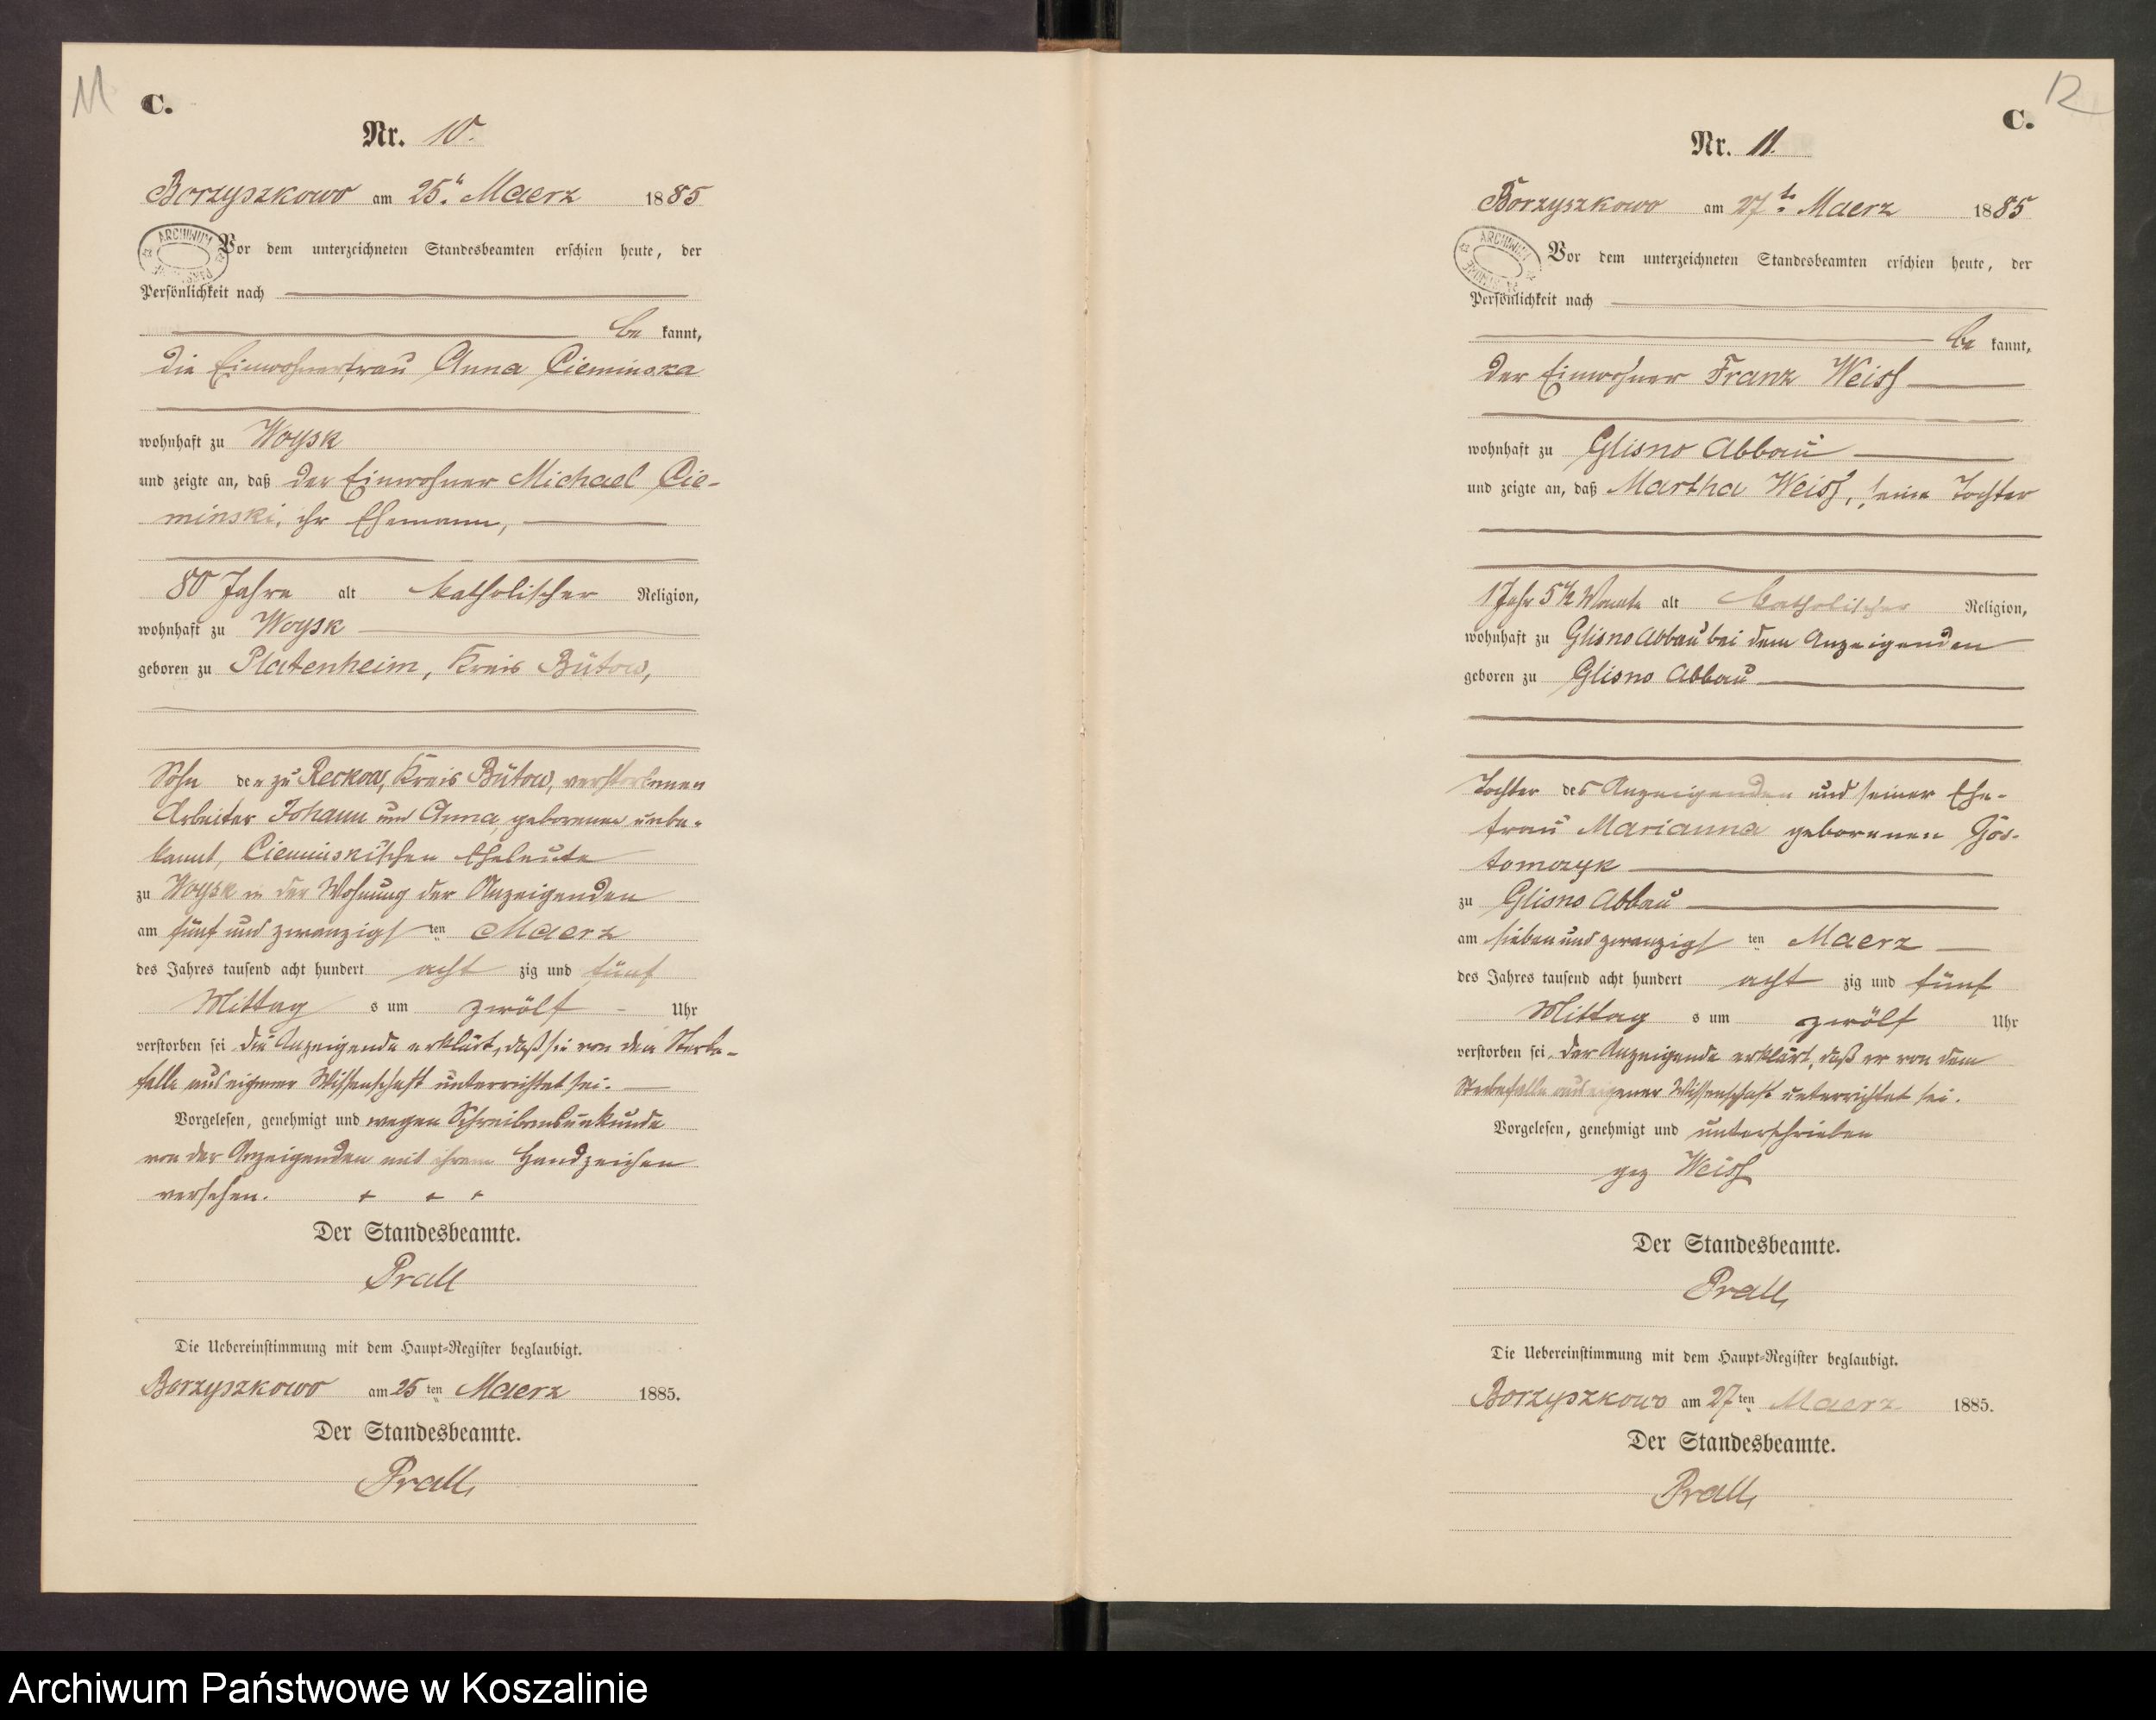 11
C.
Nr. 10.
Borzyszkowo am 25. Maerz 1885
ARCHIWUM
Vor dem unterzeichneten Standesbeamten erschien heute, der
Persönlichkeit nach
be kannt,
die Einwohnerfrau Anna Cieminska
wohnhaft zu Woysk
und zeigte an, daß der Einwohner Michael Cie-
minski, ihr Ehemann,
80 Jahre alt katholischer Religion,
wohnhaft zu Woysk
geboren zu Platenheim, Kreis Bütow,
Sohn der zu Reckow, Kreis Bütow, verstorbenen
Arbeiter Johann und Anna, geborenen unbe-
kannt, Cieminskischen Eheleute
zu Woysk in der Wohnung der Anzeigenden
am fünf und zwanzigst ten Maerz
des Jahres tausend acht hundert acht zig und fünf
Mittag s um zwölf Uhr
verstorben sei die Anzeigende erklärt, daß sie von dem Sterbe-
falle aus eigener Wissenschaft unterrichtet sei.
Vorgelesen, genehmigt und wegen Schreibensunkunde
von der Anzeigenden mit ihrem Handzeichen
versehen. + + +
Der Standesbeamte.
Prall
Die Uebereinstimmung mit dem Haupt-Register beglaubigt.
Borzyszkowo am 25 ten Maerz 1885.
Der Standesbeamte.
Prall,
12
C.
Nr. 11.
Borzyszkowo am 27 t. Maerz 1885
ARCHIWUM
Vor dem unterzeichneten Standesbeamten erschien heute, der
Persönlichkeit nach
be kannt,
der Einwohner Franz Weiß
wohnhaft zu Glisno Abbau
und zeigte an, daß Martha Weiß, seine Tochter
1 Jahr 5 1/2 Monate alt katholischer Religion,
wohnhaft zu Glisno Abbau bei dem Anzeigenden
geboren zu Glisno Abbau
Tochter des Anzeigenden und seiner Ehe-
frau Marianna geborenen Gos-
tomczyk
zu Glisno Abbau
am sieben und zwanzigst ten Maerz
des Jahres tausend acht hundert acht zig und fünf
Mittag s um zwölf Uhr
verstorben sei, der Anzeigende erklärt, daß er von dem
Sterbefalle aus eigener Wissenschaft unterrichtet sei.
Vorgelesen, genehmigt und unterschrieben
gez Weiß
Der Standesbeamte.
Prall,
Die Uebereinstimmung mit dem Haupt-Register beglaubigt.
Borzyszkowo am 27 ten Maerz 1885.
Der Standesbeamte.
Prall,
Archiwum Państwowe w Koszalinie